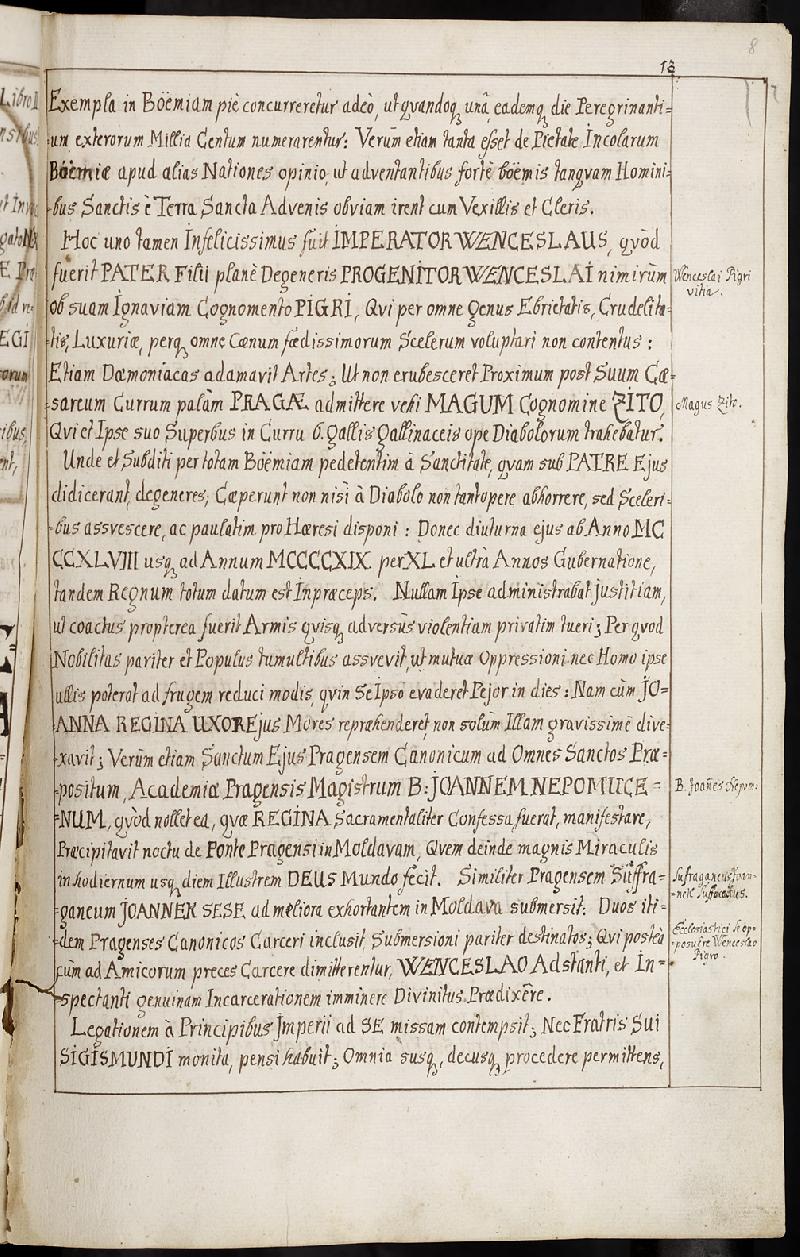 8
18
Exempla in Boëmiam piè concurreretur adeò, ut qvandoq, unâ, eademq, die Peregrinanti=
um exterorum Millia Centum numerarentur: Verùm etiam tanta esset de Pietate Incolarum
Boëmiæ apud alias Nationes opinio, ut adventantibus fortè boëmis tanqvam Homini=
bus Sanctis è Terra Sancta Advenis obviam irent cum Vexillis et Cleris.
Hoc uno tamen Infelicissimus fuit IMPERATOR WENCESLAUS, qvòd
fuerit PATER Filii planè Degeneris PROGENITOR WENCESLAI nimirùm
Wenceslai Pigri
vitia.
ob suam Ignaviam Cognomento PIGRI, Qvi per omne Genus Ebrietatis, Crudelita=
tis, Luxuriæ, perq, omne Cænum fædissimorum Scelerum voluptari non contentus:
Etiam Dæmoniacas adamavit Artes; Ut non erubesceret Proximum post Suum Cæ=
sareum Currum palàm PRAGÆ admittere vehi MAGUM Cognomine ZITO,
Magus Zito.
Qvi et Ipse suo Superbus in Curru 6. Gallis Gallinaceis ope Diabolorum trahebatur.
Unde et Subditi per totam Boëmiam pedetentim à Sanctitate, qvam sub PATRE Ejus
didicerant, degeneres, Cæperunt non nisi à Diabolo non tantopere abhorrere, sed Sceleri=
bus assvescere, ac paulatim pro Hæresi disponi: Donec diuturna ejus ab Anno MC
CCXLVIII usq, ad Annum MCCCCXIX. per XL et ultrà Annos Gubernatione,
tandem Regnum totum datum est Inpræceps. Nullam Ipse administrabat justitiam,
ut coactus propterea fuerit Armis qvisq, adversùs violentiam privatim tueri; Per qvod
Nobilitas pariter et Populus tumultibus assvevit, ut mutuæ Oppressioni nec Homo ipse
ullis poterat ad frugem reduci modis, qvin Se Ipso evaderet Pejor in dies: Nam cùm JO=
ANNA REGINA UXOR Ejus Mores reprehenderet, non solùm Illam gravissimè dive=
xavit; Verùm etiam Sanctum Ejus Pragensem Canonicum ad Omnes Sanctos Præ=
positum, Academiæ Pragensis Magistrum B: JOANNEM NEPOMUCE=
B. Joañes Nepom:
NUM, qvòd nollet ea, qvæ REGINA Sacramentaliter Confessa fuerat, manifestare,
Præcipitavit noctu de Ponte Pragensi in Moldavam, Qvem deinde magnis Miraculis
in hodiernum usq, diem Illustrem DEUS Mundo fecit. Similiter Pragensem Suffra=
ganeum JOANNEM SESE ad meliora exhortantem in Moldava submersit. Duos iti=
dem Pragenses Canonicos Carceri inclusit, Submersioni pariter destinatos; Qvi posteà
Ecclesiastici
Wenceslao
Pigro.
cùm ad Amicorum preces Carcere dimitterentur, WENCESLAO Adstanti, et In=
spectanti genuinam Incarcerationem imminere Divinitus Prædixêre.
Legationem à Principibus Imperii ad SE missam contempsit; Nec Fratris Sui
SIGISMUNDI monita, pensi habuit; Omnia susq, decusq, procedere permittens,